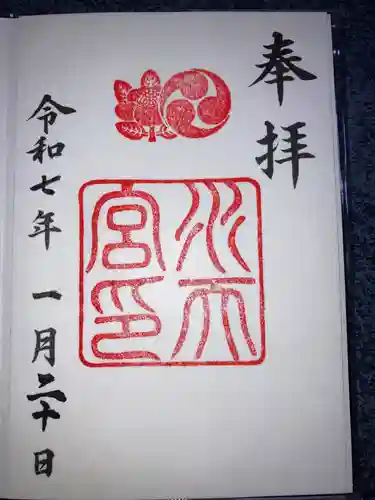 奉拝
水天
宮印
令和七年 一月二十日